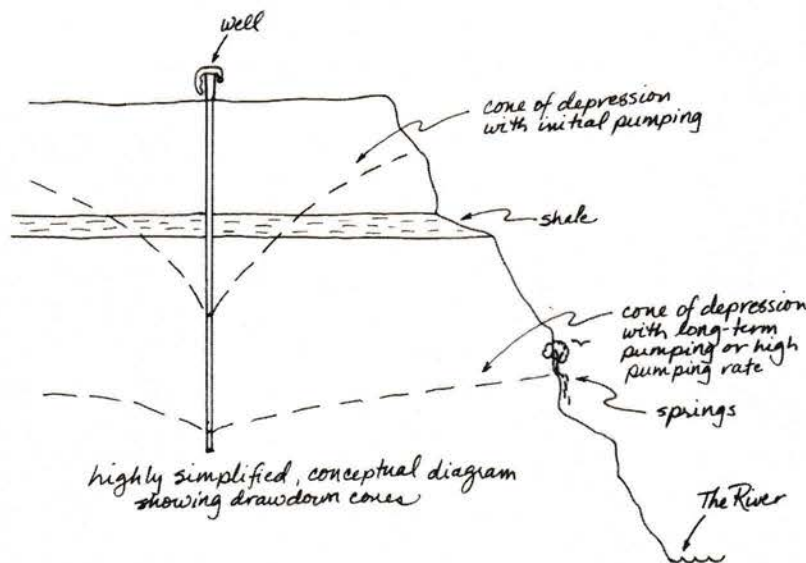 well
cone of depression
with initial pumping
shale
cone of depression
with long-term
pumping or high
pumping rate
springs
highly simplified, conceptual diagram
showing drawdown cones
The River